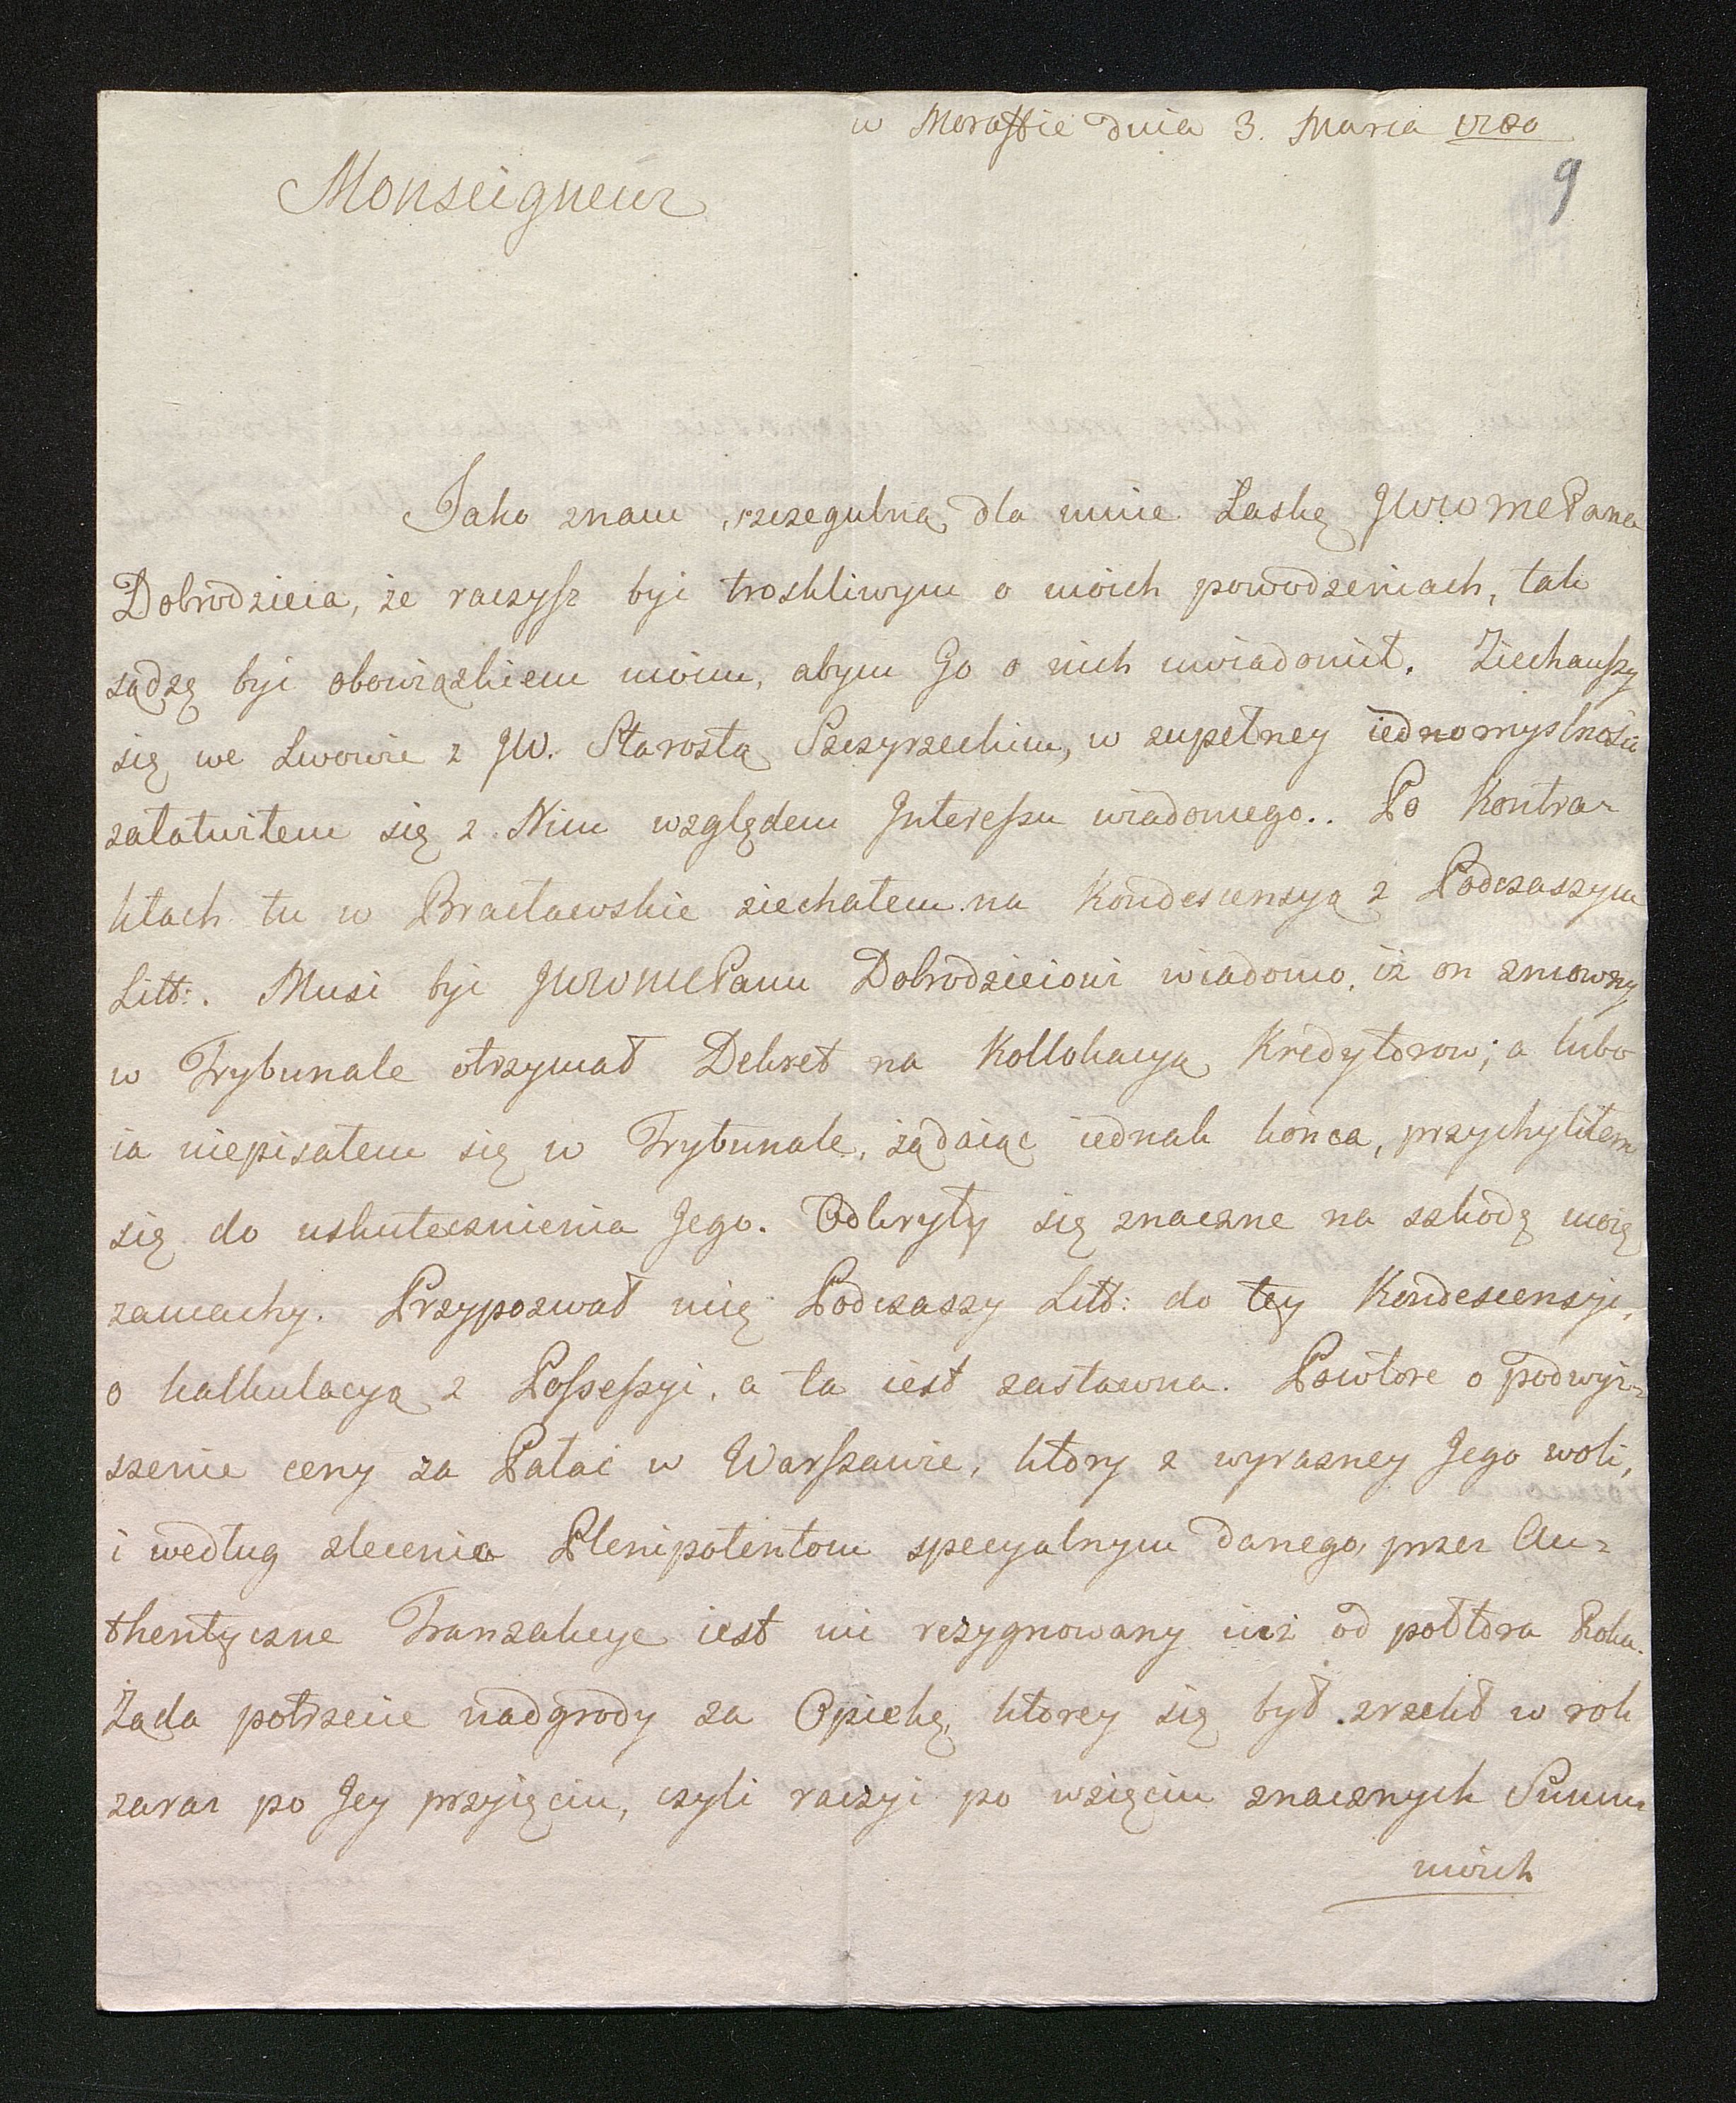 w Moraffie dnia 3. Marca 1780
9
Monseigneur
Jako znam szczegulną dla mnie Łaskę JWWMPana
Dobrodzieia, że raczysz być troskliwym o moich powodzeniach, tak
sądzę być obowiązkiem moim, abym Go o nich uwiadomił. Ziechawszy
się we Lwowie z JW. Starostą Szczyrzeckim, w zupełney iednomyslności
załatwiłem się z Nim względem Interessu wiadomego.. Po Kontra-
ktach tu w Bracławskie ziechałem na Kondescensyą z Podczaszym
Litt:. Musi być JWWMPanu Dobrodzieiowi wiadomo, iż on zmowny
w Trybunale otrzymał Dekret na Kollokacyą Kredytorow; a lubo
ia niepisałem się w Trybunale, żądaiąc iednak końca, przychyliłem
się do uskutecznienia Jego. Odkryły się znaczne na szkodę moię
zamachy. Przypozwał mię Podczaszy Litt: do tey Kondescensyi,
o kalkulacyą z Possessyi, a ta iest zastawna. Powtore o podwyż-
szenie ceny za Pałac w Warszawie, ktory z wyrazney Jego woli,
i według zlecenia Plenipotentom specyalnym danego, przez Au-
thentyczne Tranzakcye iest mi rezygnowany iuż od połtora Roku.
Żąda potrzecie nadgrody za Opiekę, ktorey się był zrzekł w rok
zaraz po Jey przyięciu, czyli raczyi po wzięciu znacznych Summ
moich